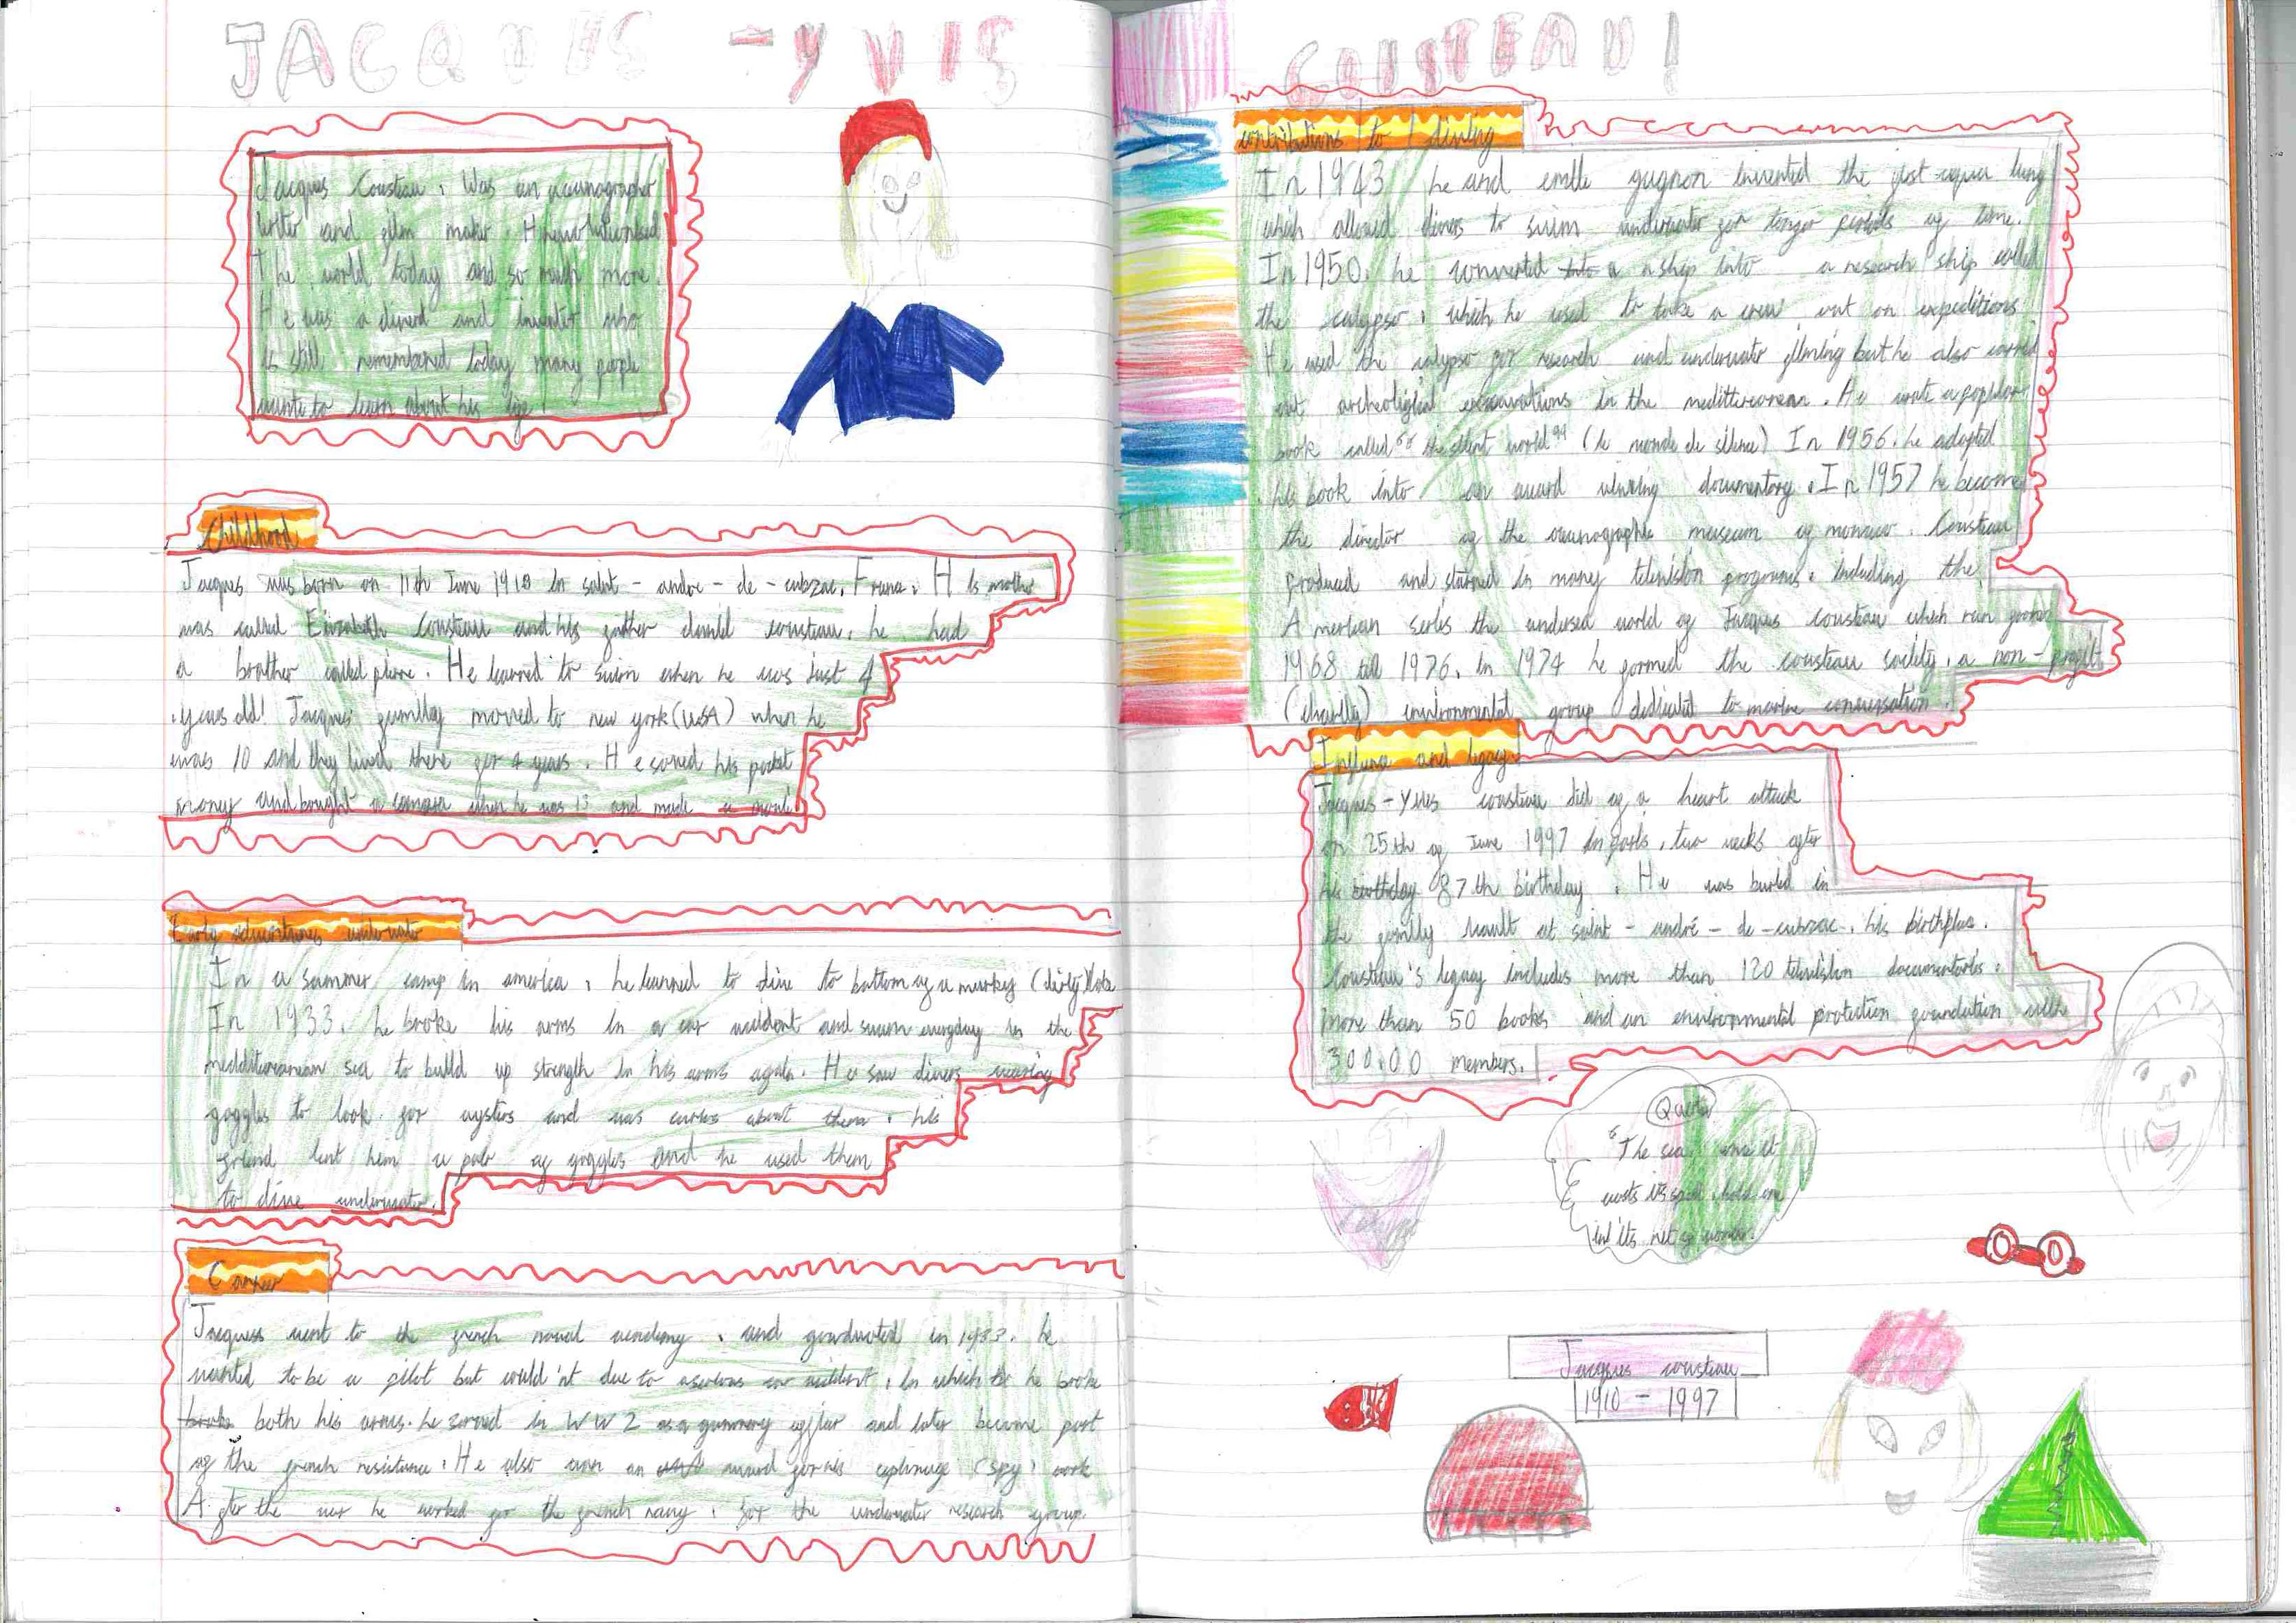 JACQUES - YVIS
COUSTEAU!
Jacques Cousteau, Was an oceanographer
writer and film maker. H
The world today and so much more.
He was a diverd and invater who
is still remembered today many people
wants to learn about his life!
Childhood
Jacques was born on 11th June 1910 in saint - andre - de - cubzac, France. His mother
was called Elizabeth Cousteau and his father daniel cousteau. he had
a brother called pierre. He learned to swim when he was Just 4
years old! Jacques' familly moved to new york (USA) when he
was 10 and they lived there for 4 years. He saved his pocket
money and bought a camera when he was 13 and made a movie
Early adventures underwater
In a summer camp in america, he learned to dive to bottom of a murkey (dirty) lake
In 1933, he broke his arms in a car accident and swum everyday in the
medditerranean sea to build up strength in his arms again. He saw divers wearing
goggles to look for oysters and was curios about them. his
friend lent him a pair of goggles and he used them
to dive underwater.
Career
Jacquess went to the french naval academy, and graduated in 1933. he
wanted to be a pilot but would'nt due to a serious car accident, in which he broke
broke both his arms. he served in WW2 as a gunnery officer and later became part
of the french resistance. He also won an award for his espionage (spy) work
After the war he worked for the french navy, for the underwater research group.
contributions to diving
In 1943 he and emile gagnon invented the first aqua lung
which allowed divers to swim underwater for longer periods of time.
In 1950, he converted into a a ship into a research ship called
the calypso, which he used to take a crew out on expeditions
He used the calypso for research and underwater filming but he also carred
out archeoligical excavations in the meditterranean. He wrote a popular
book called "the silent world" (le monde de silence) In 1956. he adapted
his book into an award winning documentary. In 1957 he become
the director of the oceanographic museum of monaco. Cousteau
produced and starred in many television programs, including the
American series the undersea world of Jacques cousteau which ran from
1968 till 1976. In 1974 he formed the cousteau society, a non-profit
(charity) environmental group dedicated to marine conservation.
Influence and legacy
Jacques-Yves cousteau died of a heart attack
on 25th of June 1997 in paris, two weeks after
his birthday 87th birthday. He was buried in
the familly vault at saint - andré - de - cubzac, his birthplace.
Cousteau's legacy includes more than 120 television documentaries.
more than 50 books and an environmental protection foundation with
300,00 members.
Quote
"The sea, once it
casts its spell, holds one
in its net of wonder.
Jacques cousteau
1910 - 1997